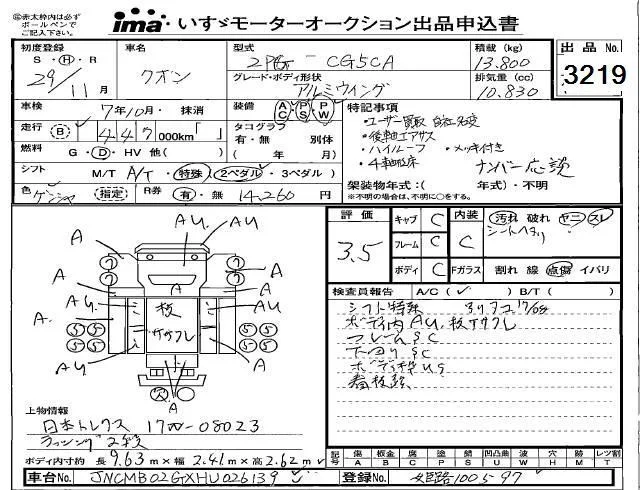 ㊟赤太枠内は必ず
ボールペンで
ご記入下さい。
ima いすゞモーターオークション出品申込書
初度登録 S・H・R 29/11月
車名 クオン
型式 2PG-CG5CA
グレード・ボディ形状 アルミウイング
積載(kg) 13.800
排気量(cc) 10.830
出品No. 3219
車検 7年10月・抹消
装備 AC PS PW
走行 (B) 447 000km「 」
タコグラフ 有・無 別体
( 年 月)
燃料 G・D・HV 他( )
シフト M/T A/T・特殊(2ペダル・3ペダル)
色 (指定) R券 有・無 14,260円
特記事項
・ユーザー買取 自社名変
・後軸エアサス
・ハイルーフ ・メッキ付き
・4軸低床 ナンバー応談
架装物年式:( 年式)・不明
※不明の場合は、不明に○をする。
評価 3.5
キャブ C
フレーム C
ボディ C
内装 C
汚れ 破れ ヤニ スレ
シートヘタリ
Fガラス 割れ 線 点傷 イバリ
検査員報告 A/C(✓) B/T( )
シフト特殊
ボディ内AU,板ササクレ
フレームSC
下回りSC
ボディ枠US
看板跡
AU AU
A A
A A
AU AU
板
ササクレ
A. A
AU AU
A
上物情報
日本トレクス 17W-08023
ラッシング2段
ボディ内寸約 長 9.63m×幅 2.41m×高 2.62m
記号 傷 板金 腐 塗 錆 凹 凹凸曲 波 穴 跡 欠 レツ割
A B C P S U W H M T
車台No. JNCMB02GXHU026139
登録No. 姫路100え97